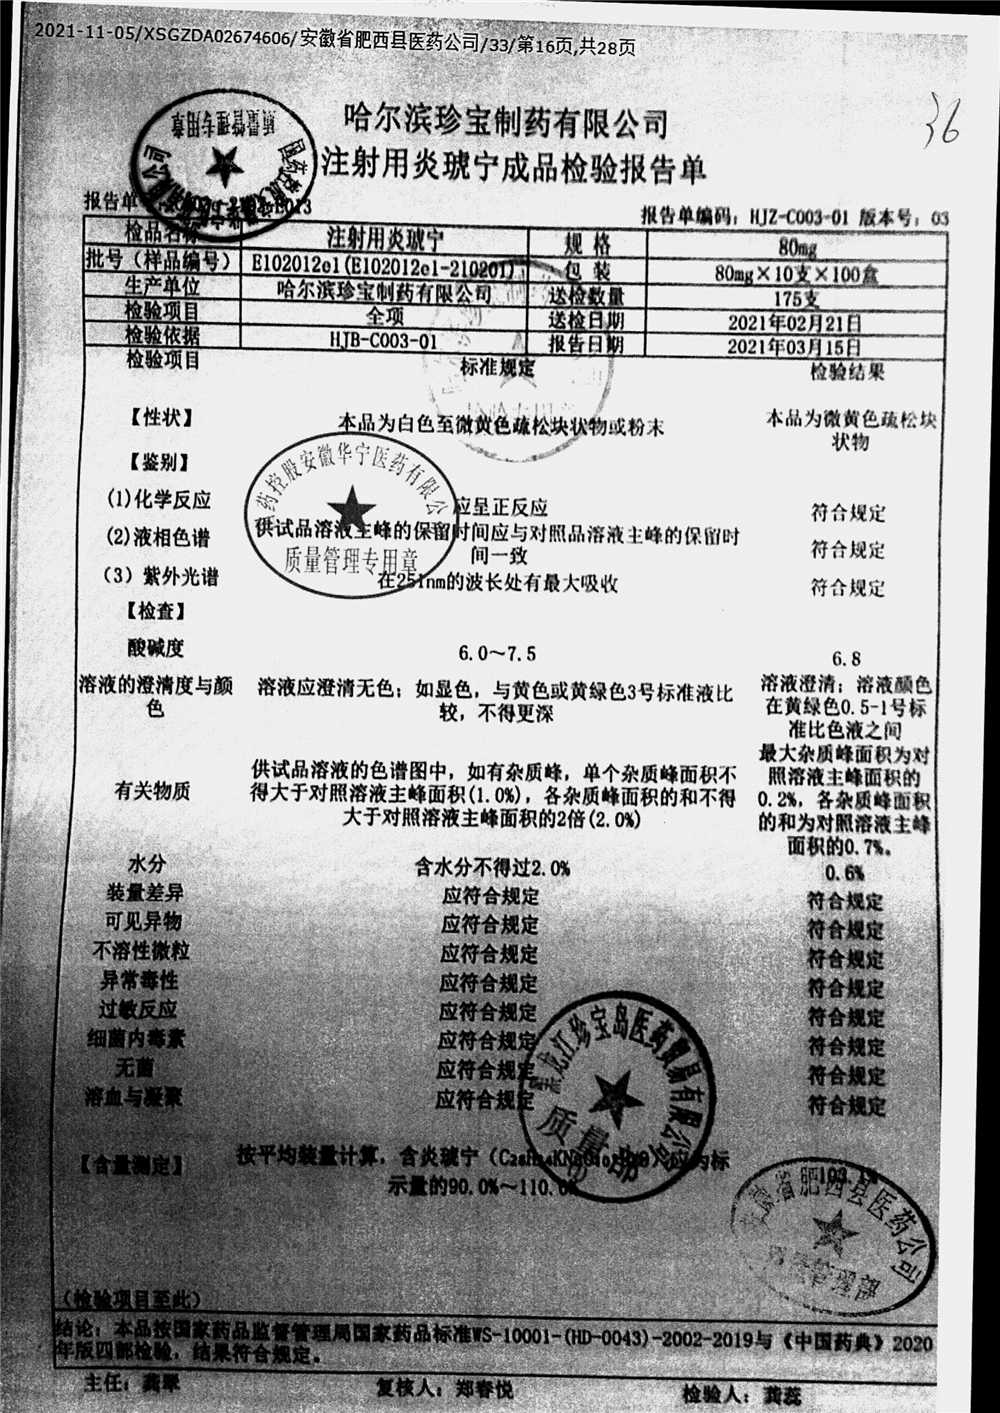 2021-11-05/XSGZDA02674606/安徽省肥西县医药公司/33/第16页,共28页
36
哈尔滨珍宝制药有限公司
注射用炎琥宁成品检验报告单
质量管理专用章
报告单
报告单编码：HJZ-C003-01 版本号：03
检品名称 注射用炎琥宁 规 格 80mg
批号（样品编号） E102012e1(E102012e1-210201) 包 装 80mg×10支×100盒
生产单位 哈尔滨珍宝制药有限公司 送检数量 175支
检验项目 全项 送检日期 2021年02月21日
检验依据 HJB-C003-01 报告日期 2021年03月15日
检验项目 标准规定 检验结果
【性状】 本品为白色至微黄色疏松块状物或粉末 本品为微黄色疏松块
状物
【鉴别】
药控股安徽华宁医药有限公
质量管理专用章
(1)化学反应 应呈正反应 符合规定
(2)液相色谱 供试品溶液主峰的保留时间应与对照品溶液主峰的保留时
间一致 符合规定
（3）紫外光谱 在251nm的波长处有最大吸收 符合规定
【检查】
酸碱度 6.0～7.5 6.8
溶液的澄清度与颜
色
溶液应澄清无色；如显色，与黄色或黄绿色3号标准液比
较，不得更深
溶液澄清；溶液颜色
在黄绿色0.5-1号标
准比色液之间
有关物质
供试品溶液的色谱图中，如有杂质峰，单个杂质峰面积不
得大于对照溶液主峰面积(1.0%)，各杂质峰面积的和不得
大于对照溶液主峰面积的2倍(2.0%)
最大杂质峰面积为对
照溶液主峰面积的
0.2%，各杂质峰面积
的和为对照溶液主峰
面积的0.7%。
水分 含水分不得过2.0% 0.6%
装量差异 应符合规定 符合规定
可见异物 应符合规定 符合规定
不溶性微粒 应符合规定 符合规定
异常毒性 应符合规定 符合规定
过敏反应 应符合规定 符合规定
细菌内毒素 应符合规定 符合规定
无菌 应符合规定 符合规定
溶血与凝聚 应符合规定 符合规定
黑龙江珍宝岛医药贸易有限公司
质量部
【含量测定】 按平均装量计算，含炎琥宁 应为标
示量的90.0%～110.0%
省肥西县医药公司
管理部
（检验项目至此）
结论：本品按国家药品监督管理局国家药品标准WS-10001-(HD-0043)-2002-2019与《中国药典》2020
年版四部检验，结果符合规定。
主任：龚翠 复核人：郑春悦 检验人：龚蕊